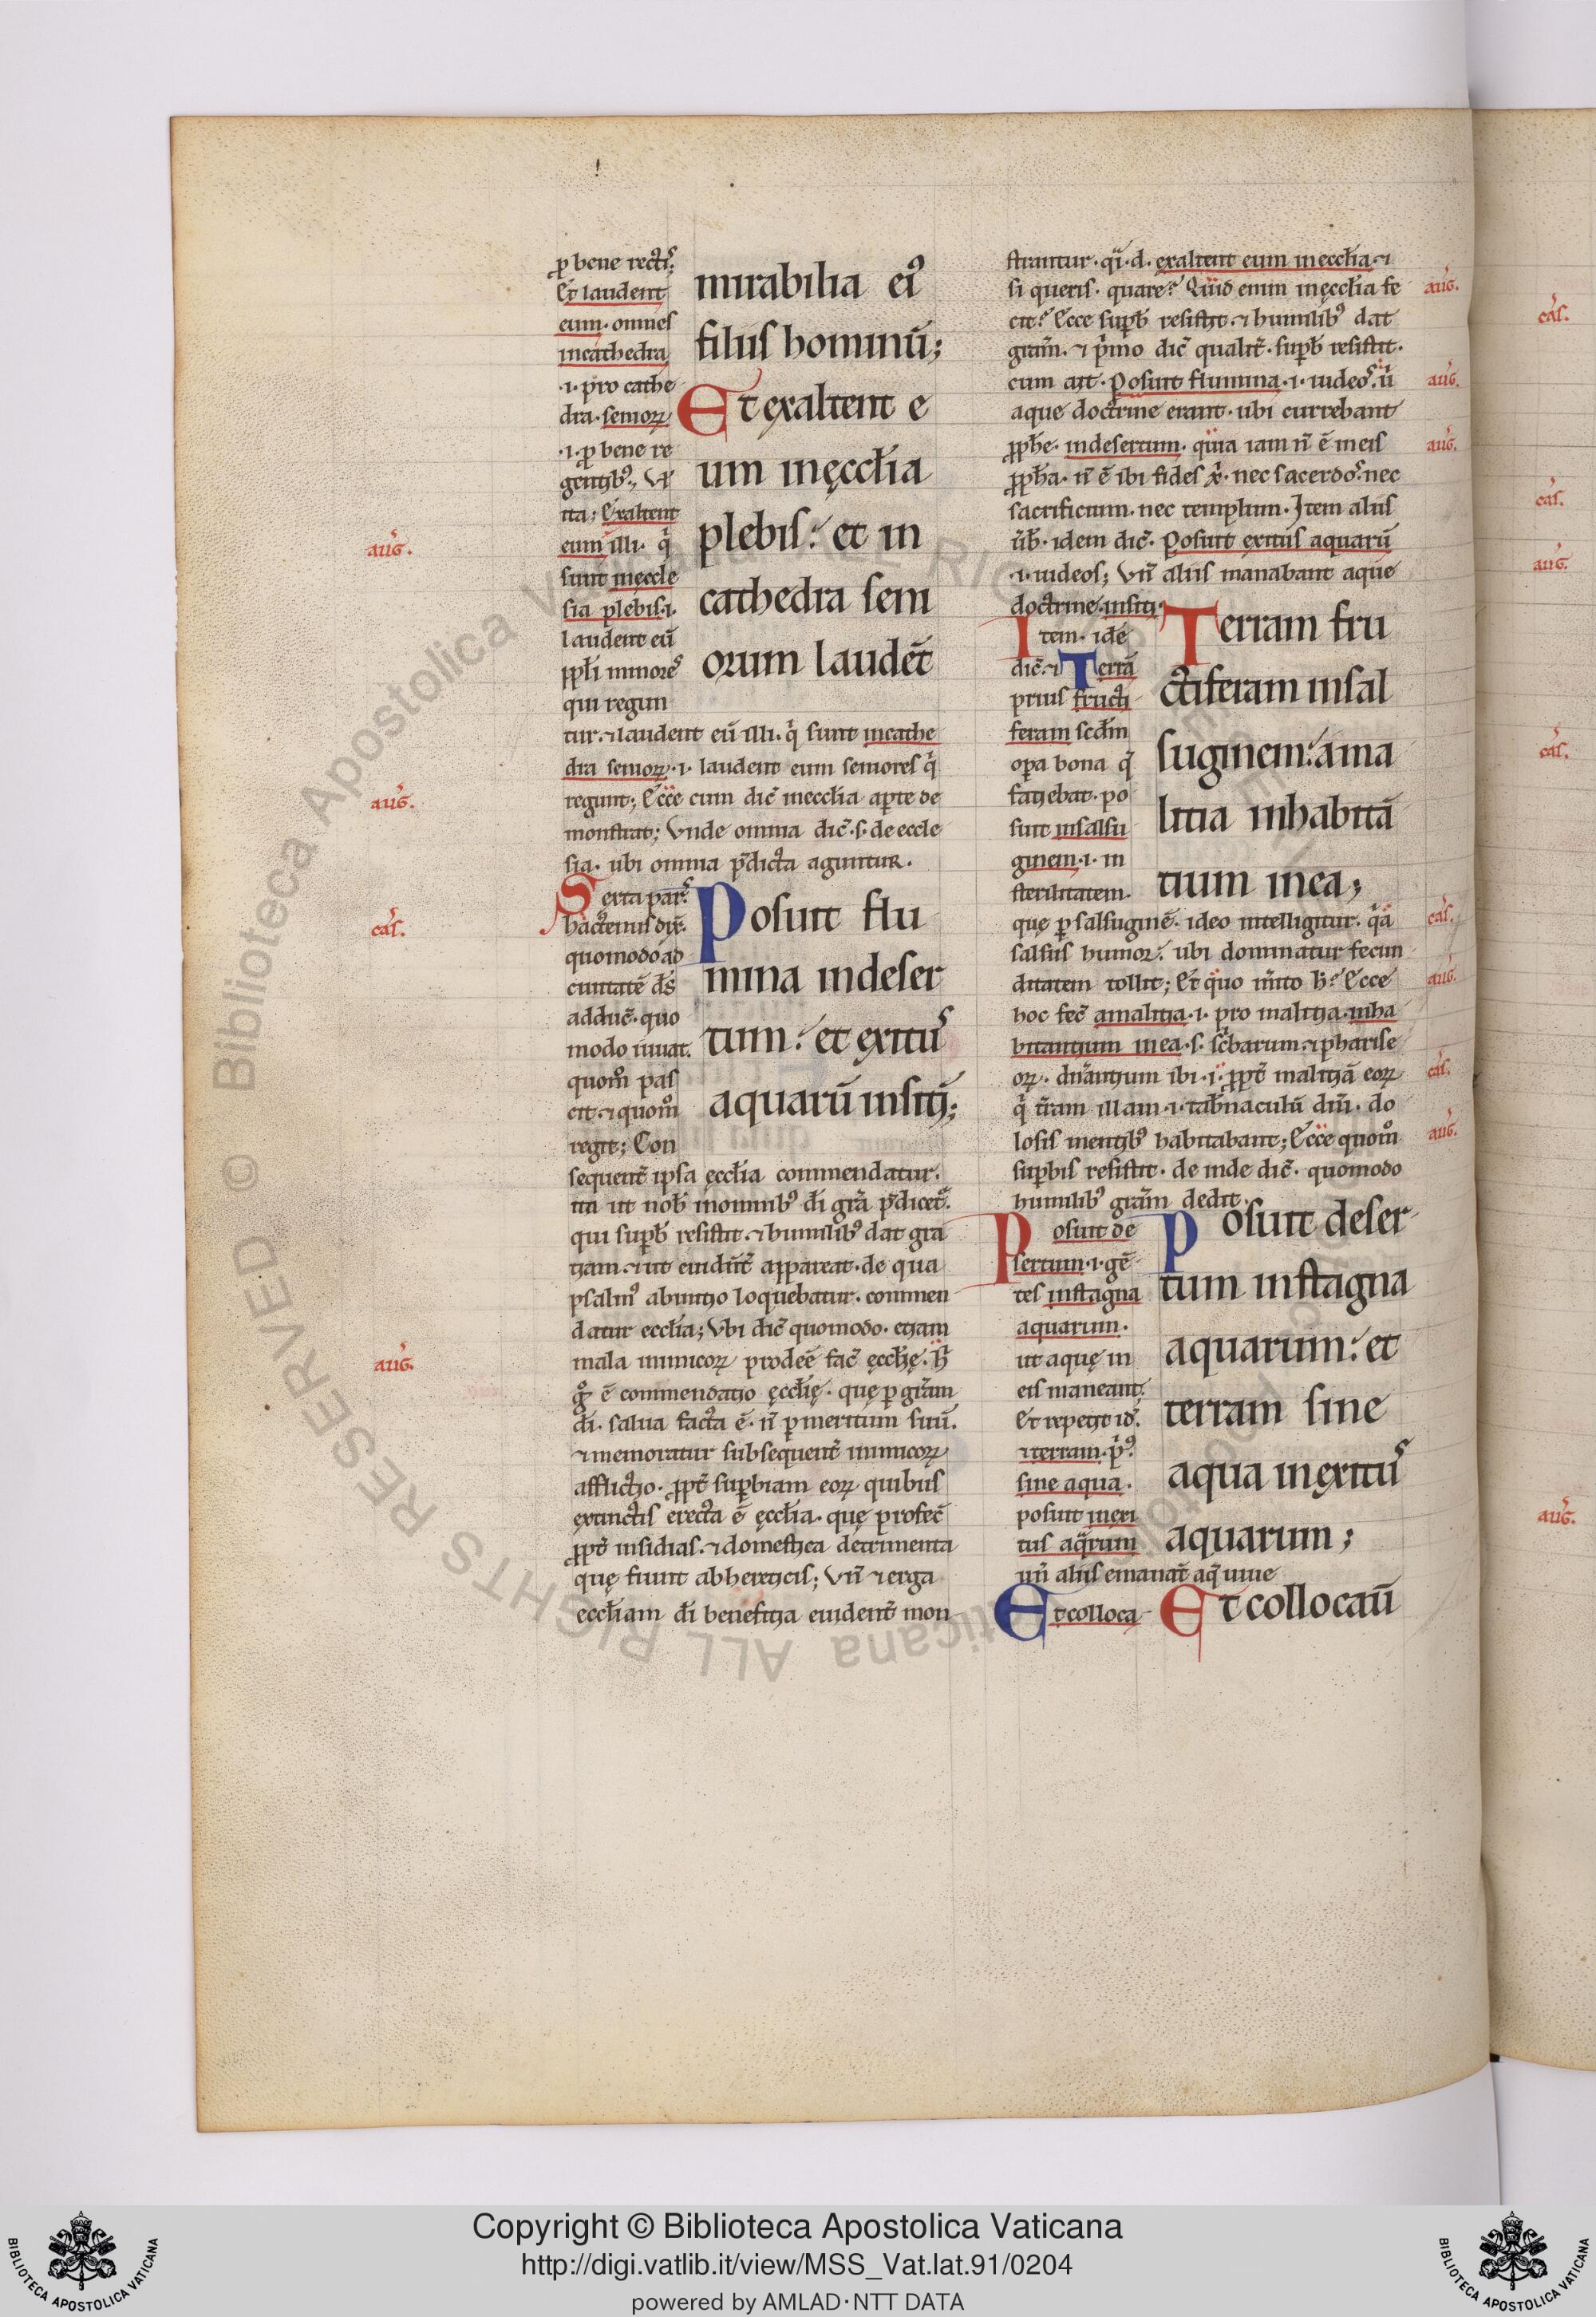 ꝓ bene rectis.
Et laudent
eum. omnes
in cathedra
.i. pro cathe
dra. seniorꝝ
.i. ꝓ bene re
gentib⁹;
ita; Exaltent
eum illi. q̇
sunt in eccle
sia plebis .i.
laudent eū
ppl̄i minores
qui regun
tur. ⁊ laudent eū illi. q̇ sunt in cathe
dra seniorꝝ .i. laudent eum seniores q̇
regunt; Ecce cum dic̄ in eccl̄ia aperte de
monstrat; Vnde omnia dic̄ .s. de eccle
sia. ubi omnia p̄dicta aguntur.
mirabilia ei⁹
filiis hominū;
Et exaltent e
um in ęccl̄ia
plebis: et in
cathedra seni
orum laudēt
Sexta pars.
hactenus dix̄.
quomodo ad
ciuitatē d̄s
adduc̄. quo
modo iuuat.
quom̊ pas
cit. ⁊ quom̊
regit; Con
sequent̄ ipsa ęccl̄ia commendatur.
ita ut nob̄ in omnib⁹ d̄i gr̄a p̄dicet̄.
qui supb̄ resistit. ⁊ humilib⁹ dat gra
tiam. ⁊ ut euident̄ appareat. de qua
psalm⁹ ab initio loquebatur. commen
datur eccl̄ia; Vbi dic̄ quomodo. etiam
mala inimicorꝝ prodeē fac̄ ęccl̄ię. H̄
g̊ ē commendatio ęccl̄ię. quę ꝑ gr̄am
d̄i. salua facta ē. n̄ ꝑ meritum suū.
⁊ memoratur subsequent̄ inimicorꝝ
afflictio. ꝓpt̄ supbiam eorꝝ quibus
extinctis erecta ē ęccl̄ia. quę profec̄
ꝓpt̄ insidias. ⁊ domestica detrimenta
quę fiunt ab hereticis; Vn̄ ⁊ erga
eccl̄iam d̄i benefitia euident̄ mon
Posuit flu
mina in deser
tum: et exitus
aquarū in sitī;
strantur. q̄i .d. exaltent eum in eccl̄ia. ⁊
si queris. quare? Quid enim in ęccl̄ia fe
cit? Ecce supb̄ resistit. ⁊ humilib⁹ dat
gram̄. ⁊ p̄mo dic̄ qualit̄. supb̄ resistit.
cum ait. Posuit flumina .i. iudeos. ū
aque doctrine erant. ubi currebant
ꝓph̄e. in desertum. quia iam n̄ ē in eis
ꝓph̄a. n̄ ē ibi fides x̄. nec sacerdos. nec
sacrificium. nec templum. Item aliis
ūb̄. idem dic̄. Posuit exitus aquarū
.i. iudeos; Vn̄ aliis manabant aque
doctrine. in siti.
Item. idē
dic̄. ⁊ Terrā
prius fructi
feram scd̄m
opa bona q̄
fatiebat. po
suit in salsu
ginem .i. in
sterilitatem.
quę ꝑ salsuginē. ideo intelligitur. q̄a
salsus humor. ubi dominatur fecun
ditatem tollit; Et quo m̄ito h̄? Ecce
hoc fec̄ a malitia .i. pro malitia. inha
bitantium in ea .s. sc̄barum. ⁊ pharise
orꝝ. dn̄antium ibi .i. ꝓpt̄ malitiā eorꝝ
q̇ t̄ram illam .i. tab̄naculū dn̄i. do
losis mentib⁹ habitabant; Ecce quom̊
supbis resistit. de inde dic̄. quomodo
humilib⁹ gram̄ dedit.
Terram fru
ctiferam in sal
suginem: a ma
litia inhabitā
tium in ea;
Posuit de
sertum .i. gē
tes in stagna
aquarum.
ut aquę in
eis maneant.
Et repetit id̄.
⁊ terram. p̄⁹
sine aqua.
posuit in exi
tus aq̄rum
un̄ aliis emanat̄ aq̄ uiue
Et colloca
Posuit deser
tum in stagna
aquarum: et
terram sine
aqua in exitus
aquarum;
Et collocau̅
auḡ.
auḡ.
cas̄.
auḡ.
auḡ.
auḡ.
auḡ.
cas̄.
auḡ.
cas̄.
auḡ.
cas̄.
cas̄.
auḡ.
cas̄.
auḡ.
© Biblioteca Apostolica Vaticana ALL RIGHTS RESERVED
Copyright © Biblioteca Apostolica Vaticana
http://digi.vatlib.it/view/MSS_Vat.lat.91/0204
powered by AMLAD·NTT DATA
BIBLIOTECA APOSTOLICA VATICANA
BIBLIOTECA APOSTOLICA VATICANA